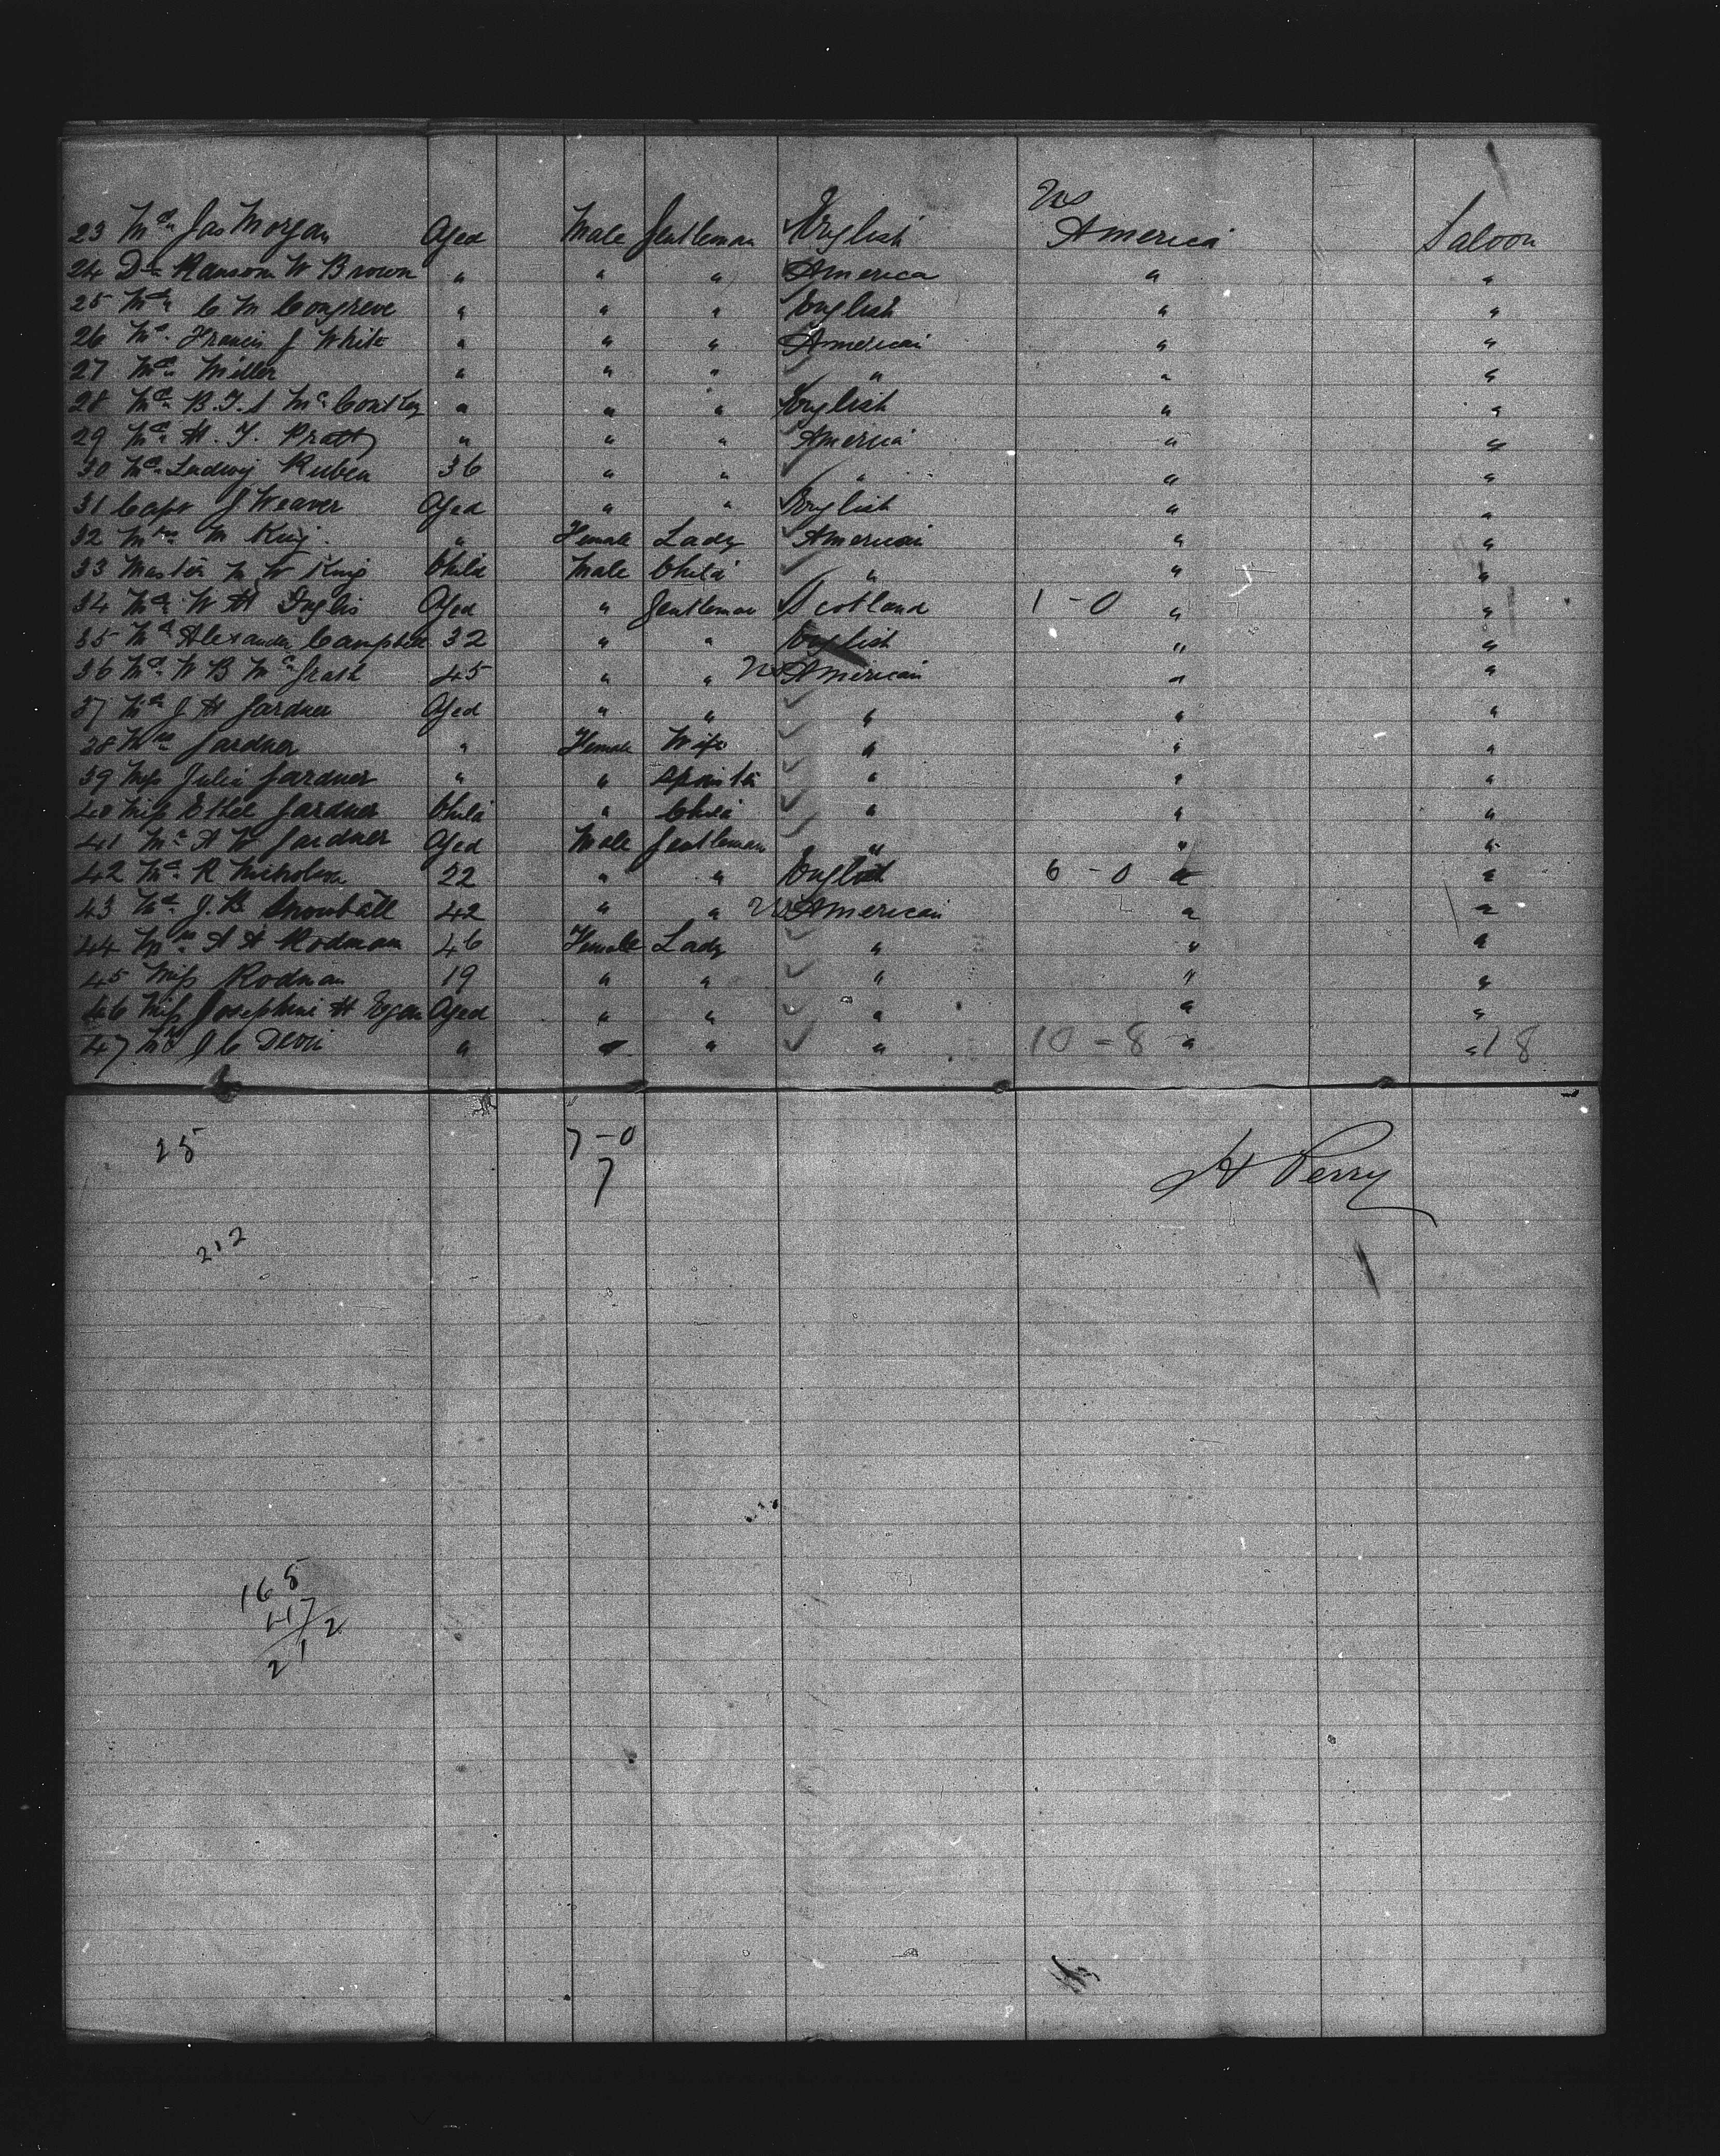 US
23 Mr. Jas Morgan Aged Male Gentleman English America Saloon
24 Dr. Ransom W Brown " " " America " "
25 Mr. C M Congreve " " " English " "
26 Mr. Francis J White " " " American " "
27 Mr. Miller " " " " " "
28 Mr. B.T.S. " " " English " "
29 Mr. H. T. Pratt " " " America " "
30 Mr. Ludwig Ruben 36 " " " " "
31 Capt J Weaver Aged " " English " "
32 Mrs. M King. " Female Lady American " "
33 Master M W King Child Male Child " " "
34 Mr. W H Inglis Aged " Gentleman Scotland 1 - 0 " "
35 Mr Alexander Campbell 32 " " English " "
36 Mr. W B McGrath 45 " " US American " "
37 Mr J H Gardner Aged " " " " "
38 Mrs Gardner " Female Wife " " "
39 Miss Julia Gardner " " " " "
40 Miss Ethel Gardner Child " Child " " "
41 Mr. A W Gardner Aged Male Gentleman " " "
42 Mr. R Nicholson 22 " " English 6 - 0 " "
43 Mr. J. B. Snowball 42 " " US American " "
44 Mrs A A Rodman 46 Female Lady " " "
45 Miss Rodman 19 " " " " "
46 Miss Josephine H Egan Aged " " " " "
47 J C " " " " 10 - 8 " " 18
25 7 - 0
7
H Perry
212
165
47
212